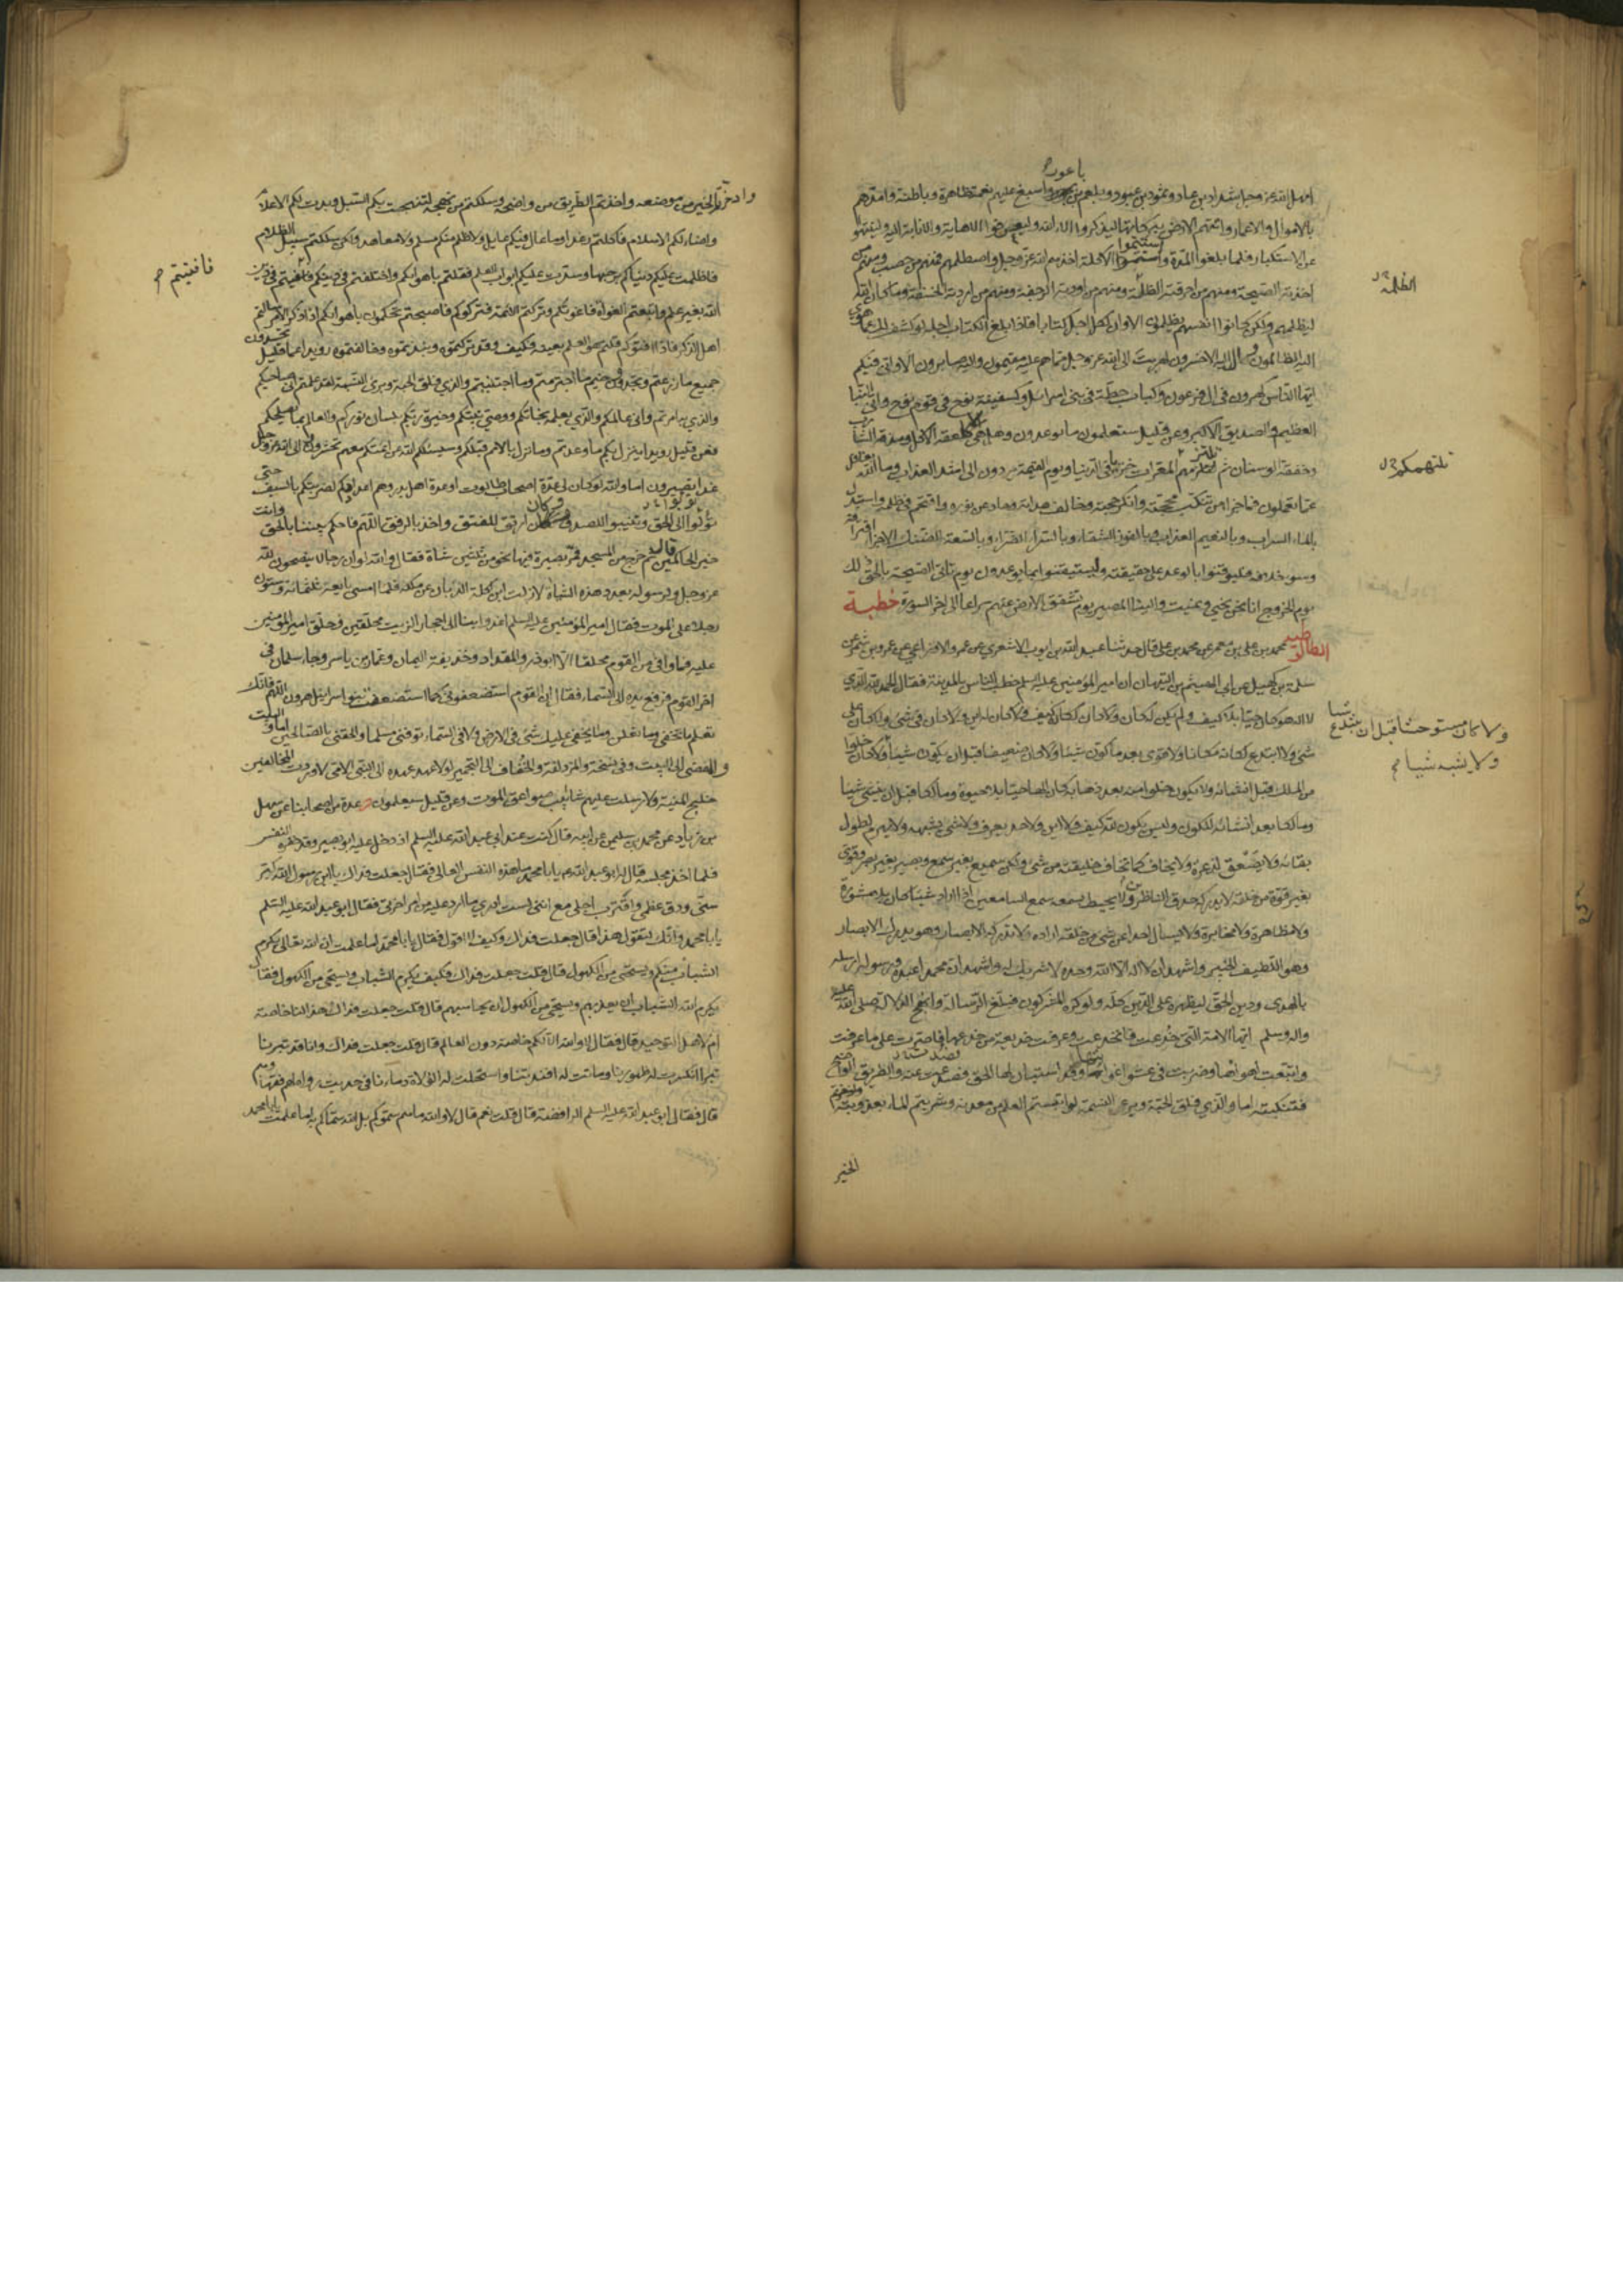 باعورا
امهل الله عز وجل شداد بن عاد وثمود بن عبود وبلعم بن واسبغ عليهم نعمه ظاهرة وباطنة وامدهم
بالاموال والاعمار واتتهم الارض ببركاتها ليذكروا الاء الله وليعرفوا الاهابة والانابة اليه ولينتهوا
عن الاستكبار فلما بلغوا المدة واستتموا الاكلة اخذهم الله عز وجل واصطلمهم فمنهم من حصب ومنهم من
اخذته الصيحة ومنهم من احرقته الظلة ومنهم من اودته الرجفة ومنهم من اردته الخسفة وما كان الله
ليظلمهم ولكن كانوا انفسهم يظلمون الا وان لكل اجل كتابا فاذا بلغ الكتاب اجله لو كشف لك عما هوى
اليه الظالمون وال اليه الاخسرون لهربت الى الله عز وجل مما هم عليه مقيمون واليه صايرون الا وانى فيكم
ايها الناس كهرون في ال فرعون وكباب حطة في بني اسرائيل وكسفينة نوح في قوم نوح واني النبأ
العظيم والصديق الاكبر وعن قليل ستعلمون ما توعدون وهل هي الا كلعقة الاكل ومذقة الشارب
وخفقة الوسنان ثم تلزمهم المعرات خزيا في الدنيا ويوم القيمة يردون الى اشد العذاب وما الله بغافل
عما تعملون فما جزاء من تنكب محجته وانكر حجته وخالف هداته وحاد عن نوره واقتحم في ظلمه واستبدل
بالماء السراب وبالنعيم العذاب وبالفوز الشقاء وبالسراء الضراء وبالسعة الضنك الا جزاء اقترافه
وسوء خلافه فليوقنوا بالوعد على حقيقته وليستيقنوا بما يوعدون يوم تاتي الصيحة بالحق ذلك
يوم الخروج انا نحن نحيي ونميت والينا المصير يوم تشقق الارض عنهم سراعا الى اخر السورة خطبة
الطالوتية محمد بن علي بن معمر عن محمد بن علي قال حدثنا عبد الله بن ايوب الاشعري عن عمرو الاوزاعي عن عمرو بن شمر عن
سلمة بن كهيل عن ابي الهيثم بن التيهان ان امير المؤمنين عليه السلم خطب الناس بالمدينة فقال الحمد لله الذي
لا اله هو كان حيا بلا كيف ولم يكن له كان ولا كان لكانه كيف ولا كان له اين ولا كان في شئ ولا كان على
شئ ولا ابتدع لكانه مكانا ولا قوي بعد ما كون شيئا ولا كان ضعيفا قبل ان يكون شيئا ولا كان خلوا
من الملك قبل انشائه ولا يكون خلوا منه بعد ذهابه كان الها حيا بلا حيوة ومالكا قبل ان ينشئ شيئا
ومالكا بعد انشائه للكون وليس يكون لله كيف ولا اين ولا حد يعرف ولا شئ يشبهه ولا يهرم لطول
بقائه ولا يضعف لذعرة ولا يخاف كما تخاف خليقته من شئ ولكن سميع بغير سمع وبصير بغير بصر وقوي
بغير قوة من خلقه لا يدركه حدق الناظرين ولا يحيط بسمعه سمع السامعين اذا اراد شيئا كان بلا مشورة
ولا مظاهرة ولا مخابرة ولا يسال احدا عن شئ من خلقه اراده لا تدركه الابصار وهو يدرك الابصار
وهو اللطيف الخبير واشهد ان لا اله الا الله وحده لا شريك له واشهد ان محمدا عبده ورسوله ارسله
بالهدى ودين الحق ليظهره على الدين كله ولو كره المشركون فبلغ الرسالة وانهج الدلالة صلى الله عليه
واله وسلم ايها الامة التي خدعت فانخدعت وعرفت خديعة من خدعها فاصرت على ما عرفت
واتبعت اهوائها وضربت في عشواء غوائها وقد استبان لها الحق فصدعت عنه والطريق الواضح
فتنكبته اما والذي فلق الحبة وبرء النسمة لو اقتبستم العلم من معدنه وشربتم الماء بعذوبته
الخير
الظلة
ولا كان مستوحشا قبل ان يبتدع شيئا
ولا يشبه شيئا
وادخرتم الخير من موضعه واخذتم الطريق من واضحه وسلكتم من نهجه لنهجت بكم السبل وبدت لكم الاعلام
واضاء لكم الاسلام فاكلتم رغدا وما عال فيكم عايل ولا ظلم منكم مسلم ولا معاهد ولكن سلكتم سبيل الظلام
فاظلمت عليكم دنياكم برحبها وسدت عليكم ابواب العلم فقلتم باهوائكم واختلفتم في دينكم فافتيتم في دين
الله بغير علم واتبعتم الغواة فاغوتكم وتركتم الائمة فتركوكم فاصبحتم تحكمون باهوائكم اذا ذكر الامر سالتم
اهل الذكر فاذا افتوكم قلتم هو العلم بعينه فكيف وقد تركتموه ونبذتموه وخالفتموه رويدا عما قليل تحصدون
جميع ما زرعتم وتجدون وخيم ما اجترمتم وما اجتلبتم والذي فلق الحبة وبرئ النسمة لقد علمتم اني صاحبكم
والذي به امرتم واني عالمكم والذي بعلمه نجاتكم ووصي نبيكم وخيرة ربكم ولسان نوركم والعالم بما يصلحكم
فعن قليل رويدا ينزل بكم ما وعدتم وما نزل بالامم قبلكم وسيسئلكم الله عن ائمتكم معهم تحشرون والى الله عز وجل
غدا تصيرون اما والله لو كان لي عدة اصحاب طالوت او عدة اهل بدر وهم اعداؤكم لضربتكم بالسيف حتى
تؤلوا الى الحق وتنيبوا للصدق فكان ارتق للفتق واخذ بالرفق اللهم فاحكم بيننا بالحق وانت
خير الحاكمين قال ثم خرج من المسجد فمر بصيرة فيها نحو من ثلثين شاة فقال والله لو ان لي رجالا ينصحون لله
عز وجل ولرسوله بعدد هذه الشياه لازلت ابن اكلة الذبان عن ملكه فلما امسى بايعه ثلثمائة وستون
رجلا على الموت فقال امير المؤمنين عليه السلم اغدوا بنا الى احجار الزيت محلقين وحلق امير المؤمنين
عليه فما وافى من القوم محلقا الا ابوذر والمقداد وحذيفة اليمان وعمار بن ياسر وجاء سلمان في
اخر القوم فرفع يده الى السماء فقال ان القوم استضعفوني كما استضعفت بنو اسرائيل هرون اللهم فانك
تعلم ما نخفي وما نعلن وما يخفى عليك شئ في الارض ولا في السماء توفني مسلما والحقني بالصالحين اما والبيت
والمفضي الى البيت وفي نسخة والمزدلفة والخفاف الى التجمير لولا عهد عهده الى النبي الامي لاوردت المخالفين
خليج المنية ولارسلت عليهم شابيب صواعق الموت وعن قليل سيعلمون عدة من اصحابنا عن سهل
بن زياد عن محمد بن سليمن عن ابيه قال كنت عند ابي عبد الله عليه السلم اذ دخل عليه ابو بصير وقد حفزه النفس
فلما اخذ مجلسه قال له ابو عبد الله يا با محمد ما هذه النفس العالي فقال جعلت فداك يا ابن رسول الله كبر
سني ودق عظمي واقترب اجلي مع انني لست ادري ما ارد عليه من امر اخرتي فقال ابو عبد الله عليه السلم
يا با محمد وانك لتقول هذا قال جعلت فداك وكيف لا اقول فقال يا با محمد اما علمت ان الله تعالى يكرم
الشباب منكم ويستحيي من الكهول قال قلت جعلت فداك فكيف يكرم الشباب ويستحيي من الكهول فقال
يكرم الله الشباب ان يعذبهم ويستحيي من الكهول ان يحاسبهم قال قلت جعلت فداك هذا لنا خاصة
ام لاهل التوحيد قال فقال لا والله الا لكم خاصة دون العالم قال قلت جعلت فداك فانا قد نبزنا
نبزا انكسرت له ظهورنا وماتت له افئدتنا واستحلت له الولاة دماءنا في حديث رواه لهم فقهاؤهم
قال فقال ابو عبد الله عليه السلم الرافضة قال قلت نعم قال لا والله ما هم سموكم بل الله سماكم به اما علمت يا با محمد
فافتيتم